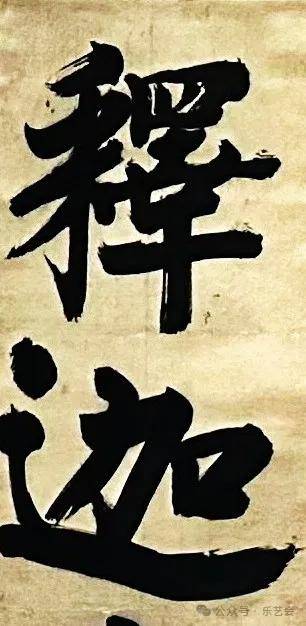 釋迦
公众号·乐艺会